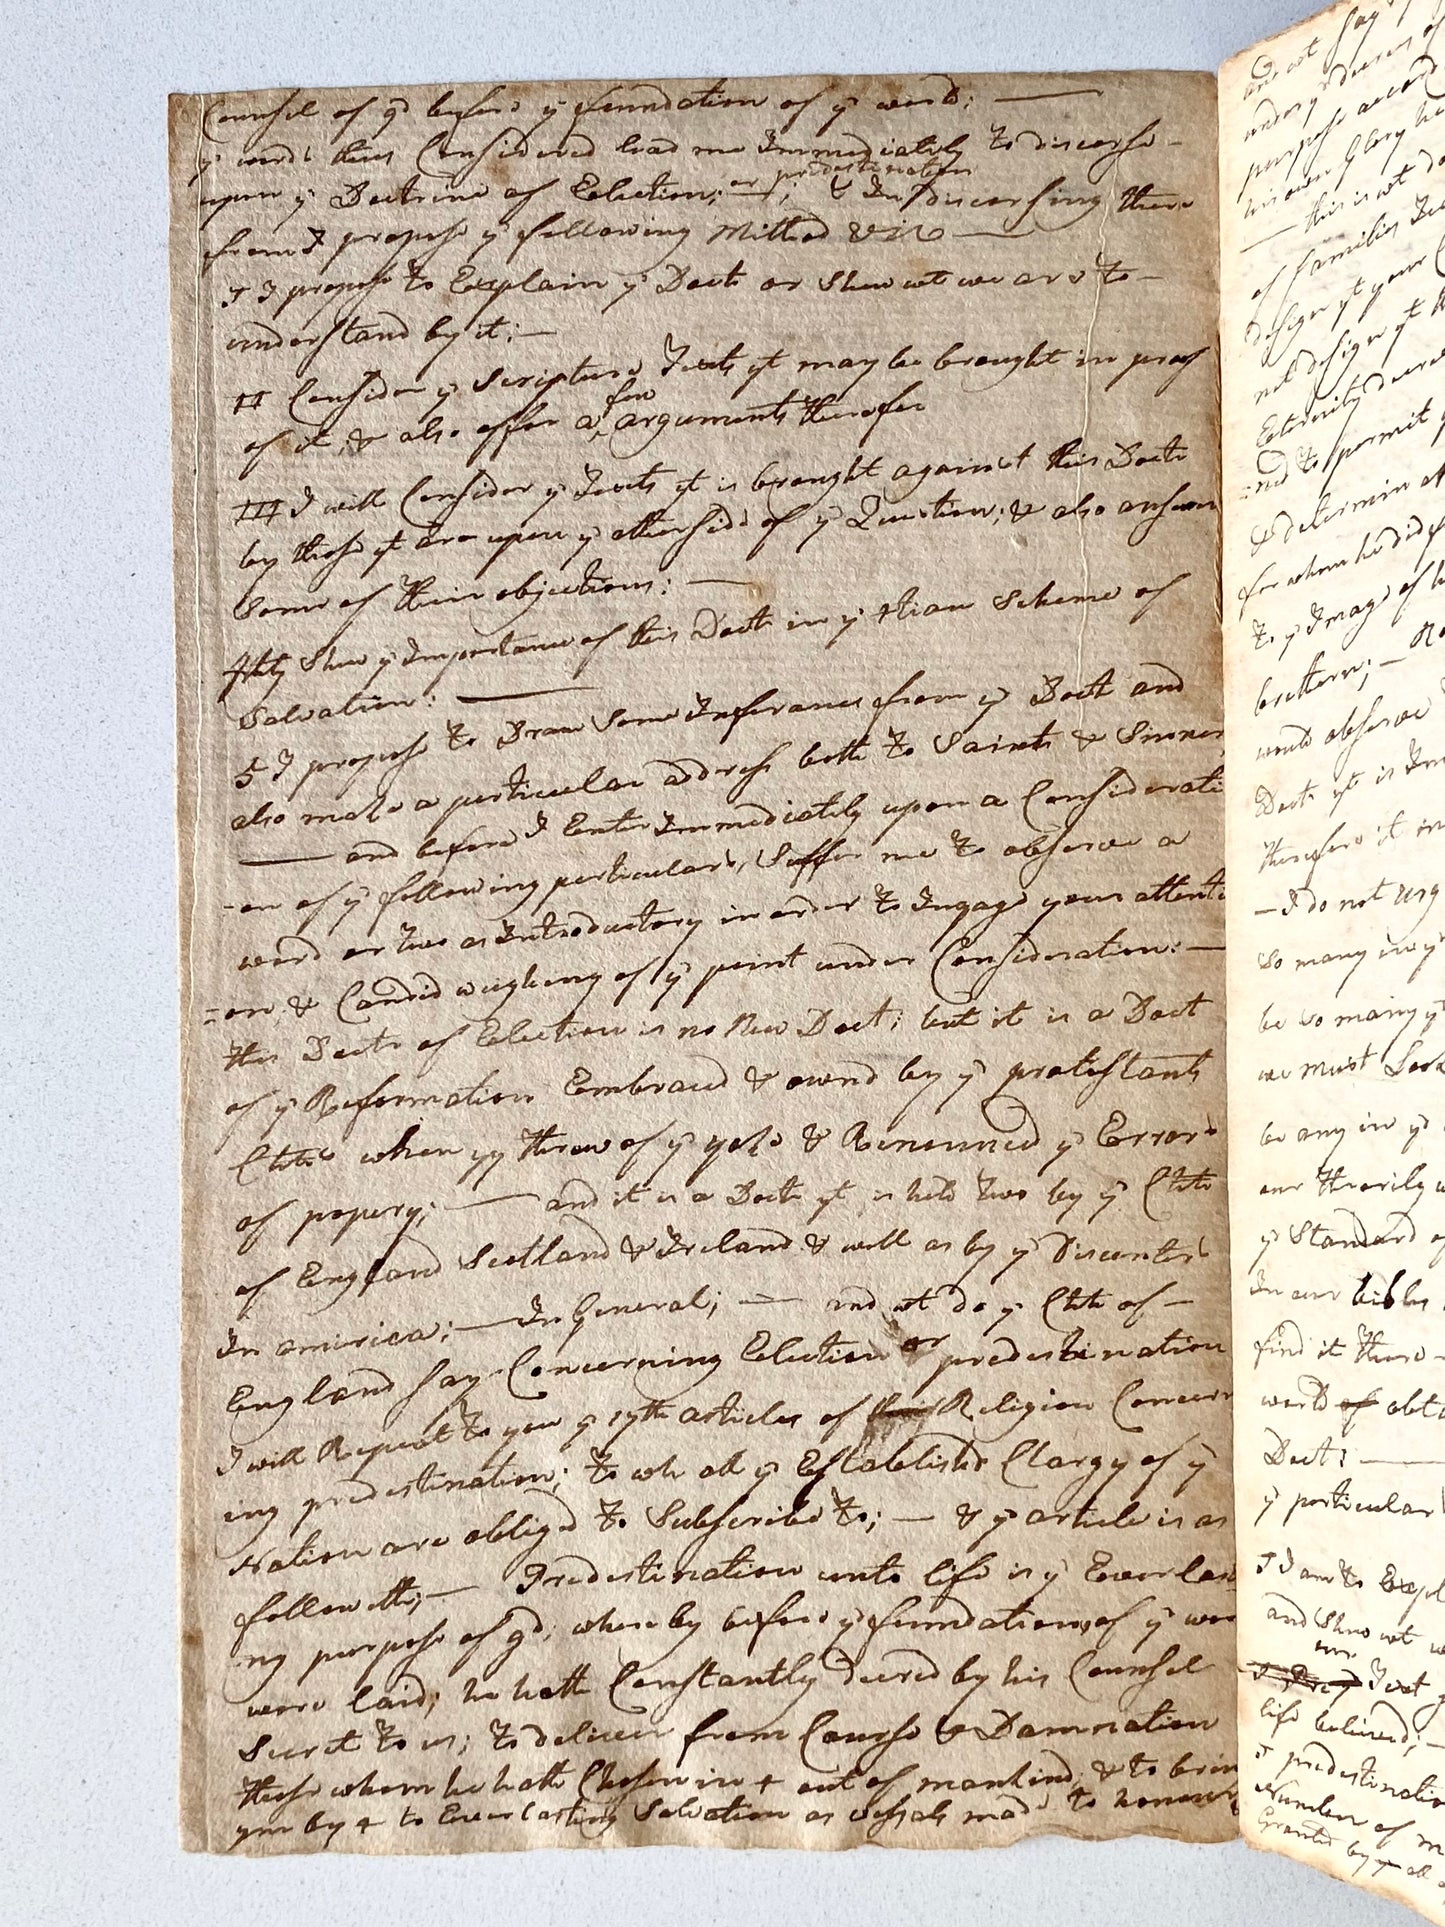 Counsel of gd before ye foundation of ye world; —
ye words thus Considered lead me Immediately to discorse -
upon ye Doctrine of Election; or predestination; & In discorsing there
from I propose ye following Mithod viz —
I I propose to Explain ye Doct or Shew wt we are to -
understand by it; —
II Consider ye Scripture Texts yt may be brought in proof
of it; & also offer a few arguments therefor
III I will Consider ye Texts yt is brought against this Doct
by those yt are upon ye other side of ye Question; & also answer
Some of their objections: —
4thly Shew ye Importance of this Doct in ye +tian Scheme of
Salvation: —
5 I propose to Draw Some Inferances from ye Doct and
also make a perticular address both to Saints & Sinners
— and before I Enter Immediately upon a Considerati
-on of ye following perticulars, Suffer me to observe a
word or two as Introductory in order to Ingage your attenti
=on, & Candid weighing of ye point under Consideration: —
this Doct of Election is no New Doct; but it is a Doct
of ye Reformation Embraced & ownd by ye protestants
Chhs when yy threw of ye yoke & Renounced ye Errors
of popery; — and it is a Doct yt is held two by ye Chh
of England Scotland & Ireland & well as by ye Discenters
In america; — In General; — and wt do ye Chh of —
England say Concerning Election or predestination
I will Repeat to you ye 17th articles of Religion Concern
ing predestination; to wh all ye Established Clargy of ye
Nation are obliged to Subscribe to; — & ye article is as
followeth; — Predestination unto life is ye Everlas
ng purpose of gd, whereby before ye foundations of ye wor
were laid; he hath Constantly decred by his Counsel
Secret to us; to deliver from Course & Damnation
those whom he hath Chosen in + out of mankind; & to brin
ym by + to Everlasting Salvation as vessals made to honour
are not say
under ye decrees of
purpose accord
his own Glory ha
— this is not d
of families
design yt your
not design yt
Eternity decree
=ned to permit
& determin
for whom he did
to ye Image of h
brethern; —
would observe
Doct yt is Im
therefore it
— I do not urg
So many in ye
be So many yt
we must Look
be any in ye
our thorily
ye Standard of
In our bibles
find it there -
world of
Doct: —
ye particular
I I am to Expl
and Shew wt w
our
Text
life believed; —
predestinatio
Number of m
Granted by ye all